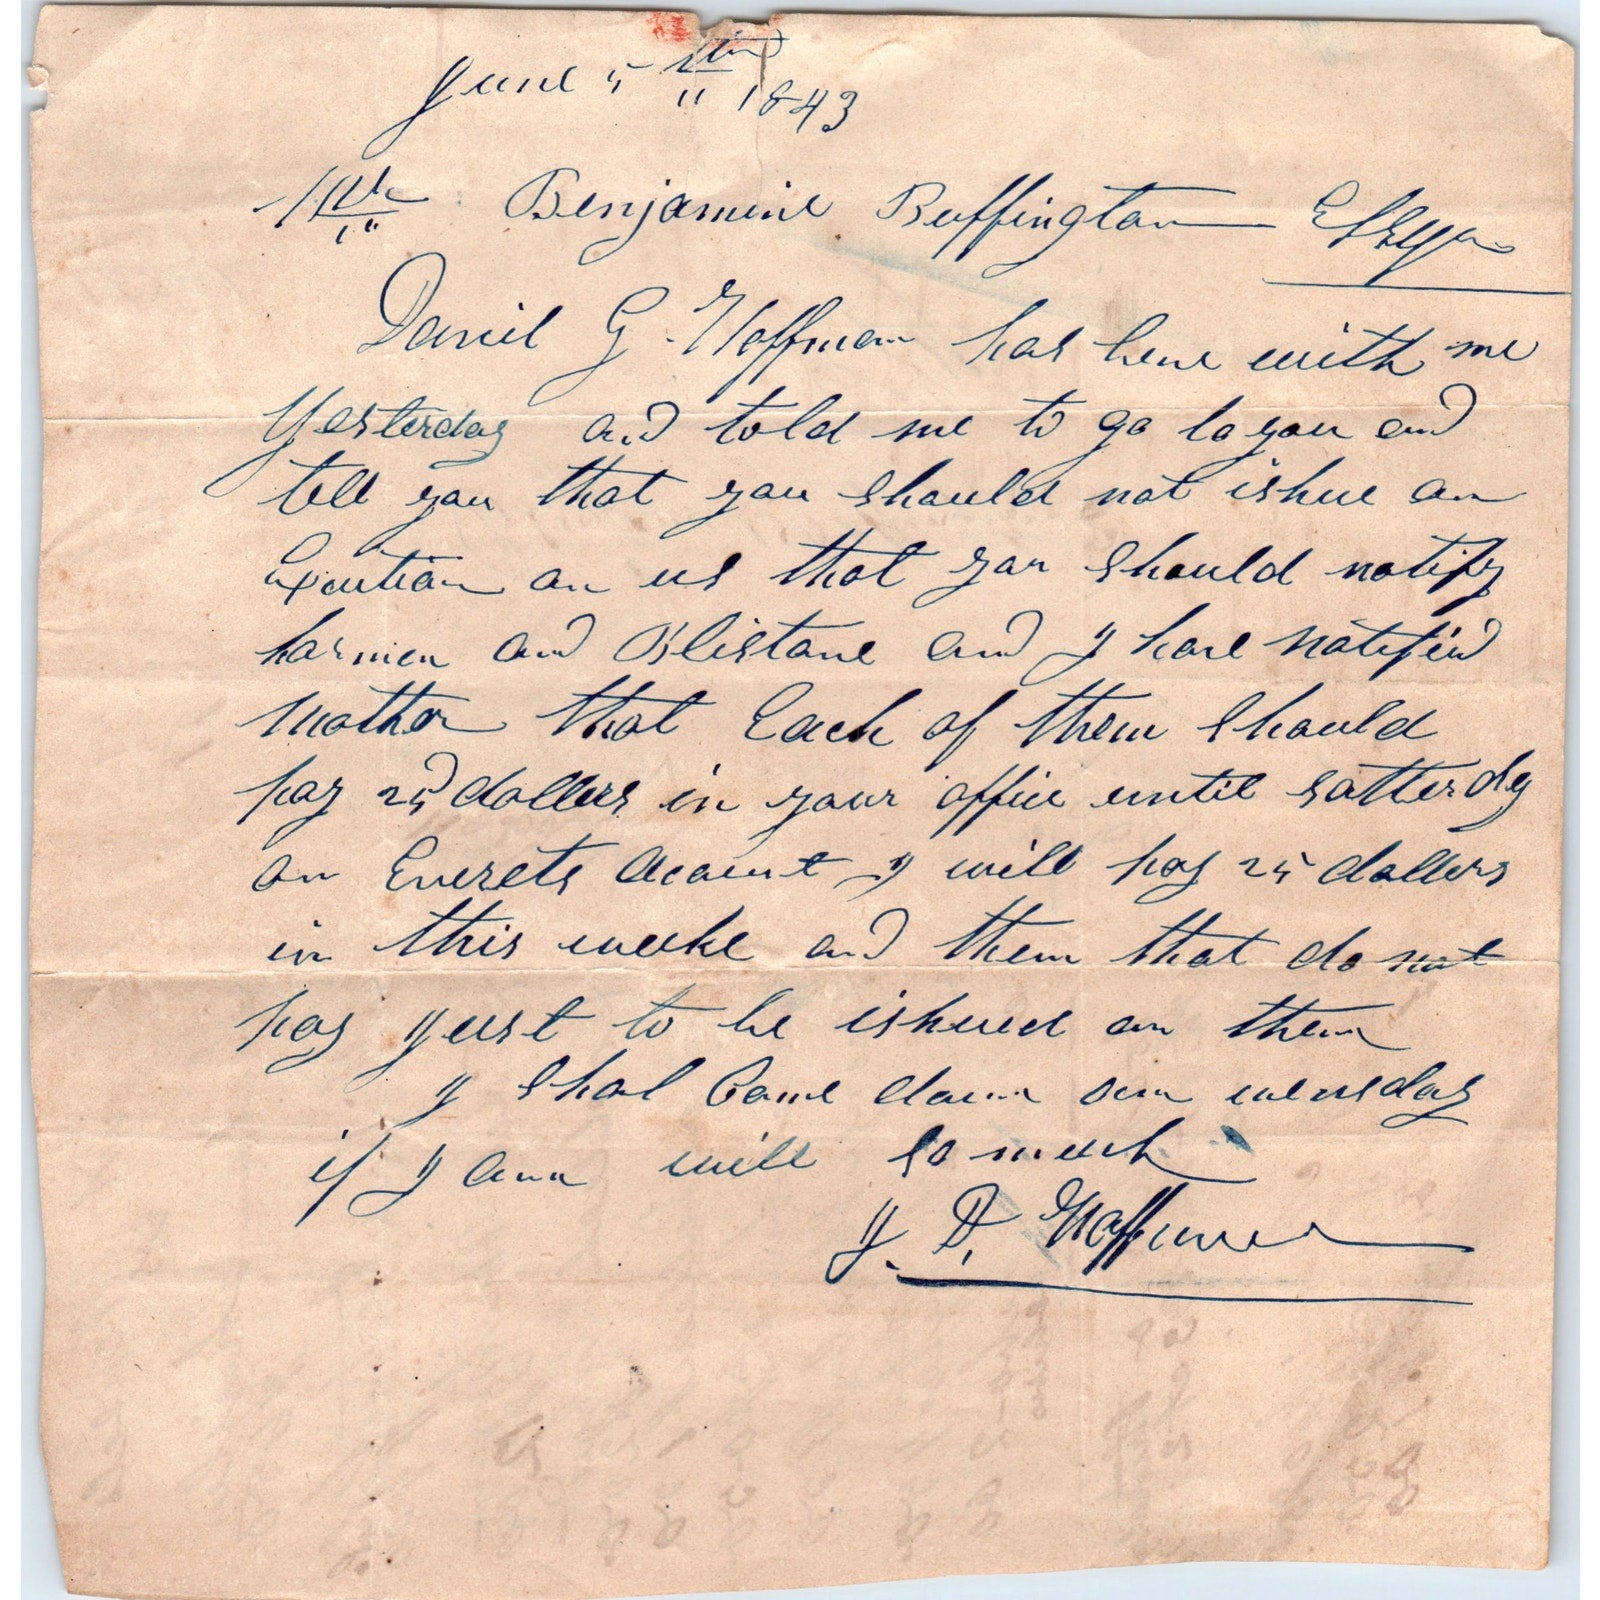 June 5th 1843
Mr Benjamine Buffington Esqr
Daniel G. Hoffman has bene with me
Yesterday and told me to go to you and
tell you that you should not ishue an
Exicution on us that you should notify
harmen and Blistone and I have notified
mother that Each of them should
pay 25 dollers in your office until satterdy
on Everets account I will pay 25 dollers
in this weeke and them that do not
pay Just to be ishued on them
I shal Come down on wensday
if I ann will so much
J. D. Hoffman